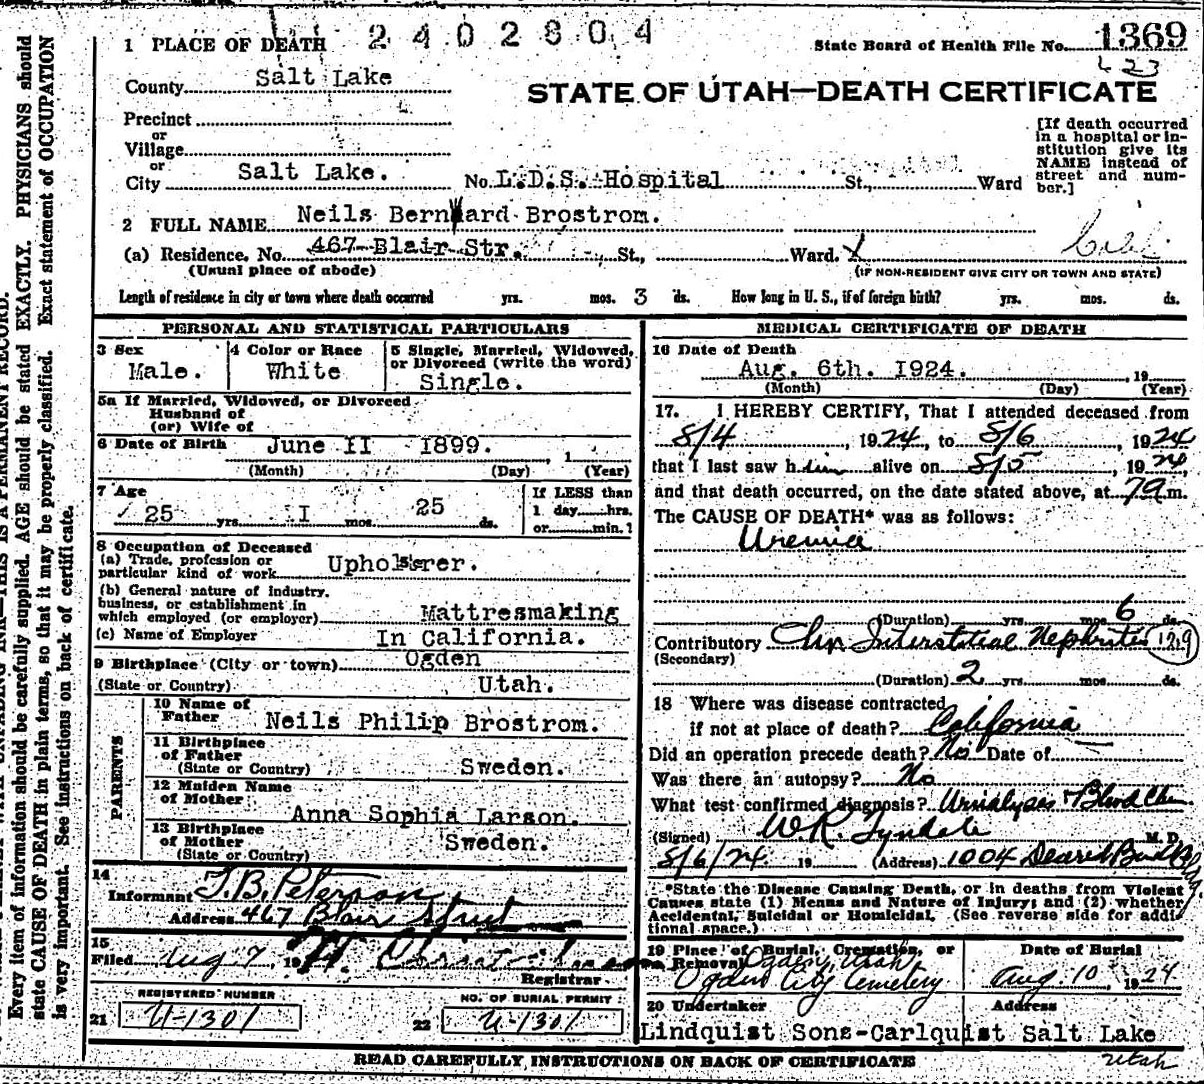 2402804
1 PLACE OF DEATH
State Board of Health File No. 1369
County Salt Lake
STATE OF UTAH—DEATH CERTIFICATE
Precinct
or
Village
or
City Salt Lake. No. L.D.S. Hospital St., Ward
[If death occurred
in a hospital or in-
stitution give its
NAME instead of
street and num-
ber.]
2 FULL NAME Neils Bernard Brostrom.
(a) Residence. No. 467 Blair Str. St., Ward.
(Usual place of abode) (IF NON-RESIDENT GIVE CITY OR TOWN AND STATE)
Length of residence in city or town where death occurred yrs. mos. 3 ds. How long in U. S., if of foreign birth? yrs. mos. ds.
PERSONAL AND STATISTICAL PARTICULARS
3 Sex
Male.
4 Color or Race
White
5 Single, Married, Widowed,
or Divorced (write the word)
Single.
5a If Married, Widowed, or Divorced
Husband of
(or) Wife of
6 Date of Birth June II 1899. 1
(Month) (Day) (Year)
7 Age
25 yrs. I mos. 25 ds.
If LESS than
1 day hrs.
or min.?
8 Occupation of Deceased
(a) Trade, profession or
particular kind of work Upholsterer.
(b) General nature of industry,
business, or establishment in
which employed (or employer) Mattresmaking
(c) Name of Employer In California.
9 Birthplace (City or town) Ogden
(State or Country) Utah.
PARENTS
10 Name of
Father Neils Philip Brostrom.
11 Birthplace
of Father
(State or Country) Sweden.
12 Maiden Name
of Mother
Anna Sophia Larson.
13 Birthplace
of Mother
(State or Country) Sweden.
14
Informant T.B. Peterson
Address 467 Blair Street
15
Filed Aug 7 19
Registrar
REGISTERED NUMBER
21 U-1301
NO. OF BURIAL PERMIT
22 U-1301
MEDICAL CERTIFICATE OF DEATH
16 Date of Death
Aug. 6th. I924. 19
(Month) (Day) (Year)
17. I HEREBY CERTIFY, That I attended deceased from
8/4, 1924, to 8/6, 1924
that I last saw him alive on 8/5, 1924,
and that death occurred, on the date stated above, at m.
The CAUSE OF DEATH* was as follows:
Uremia
(Duration) yrs. mos. 6 ds.
Contributory Chr Interstitial Nephritis 129
(Secondary)
(Duration) 2 yrs. mos. ds.
18 Where was disease contracted
if not at place of death? California
Did an operation precede death? No Date of
Was there an autopsy? No
What test confirmed diagnosis? Urinalysis Blood Chem
(Signed) W.R. Tyndale M. D.
8/6/24 19 (Address) 1004 Deseret Bank Bldg
*State the Disease Causing Death, or in deaths from Violent
Causes state (1) Means and Nature of Injury; and (2) whether
Accidental, Suicidal or Homicidal. (See reverse side for addi-
tional space.)
19 Place of Burial, Cremation, or
Removal Ogden, Utah
Ogden City Cemetery
Date of Burial
Aug. 10, 1924
20 Undertaker Address
Lindquist Sons-Carlquist Salt Lake
Utah
READ CAREFULLY INSTRUCTIONS ON BACK OF CERTIFICATE
Every item of information should be carefully supplied. AGE should be stated EXACTLY. PHYSICIANS should
state CAUSE OF DEATH in plain terms, so that it may be properly classified. Exact statement of OCCUPATION
is very important. See instructions on back of certificate.